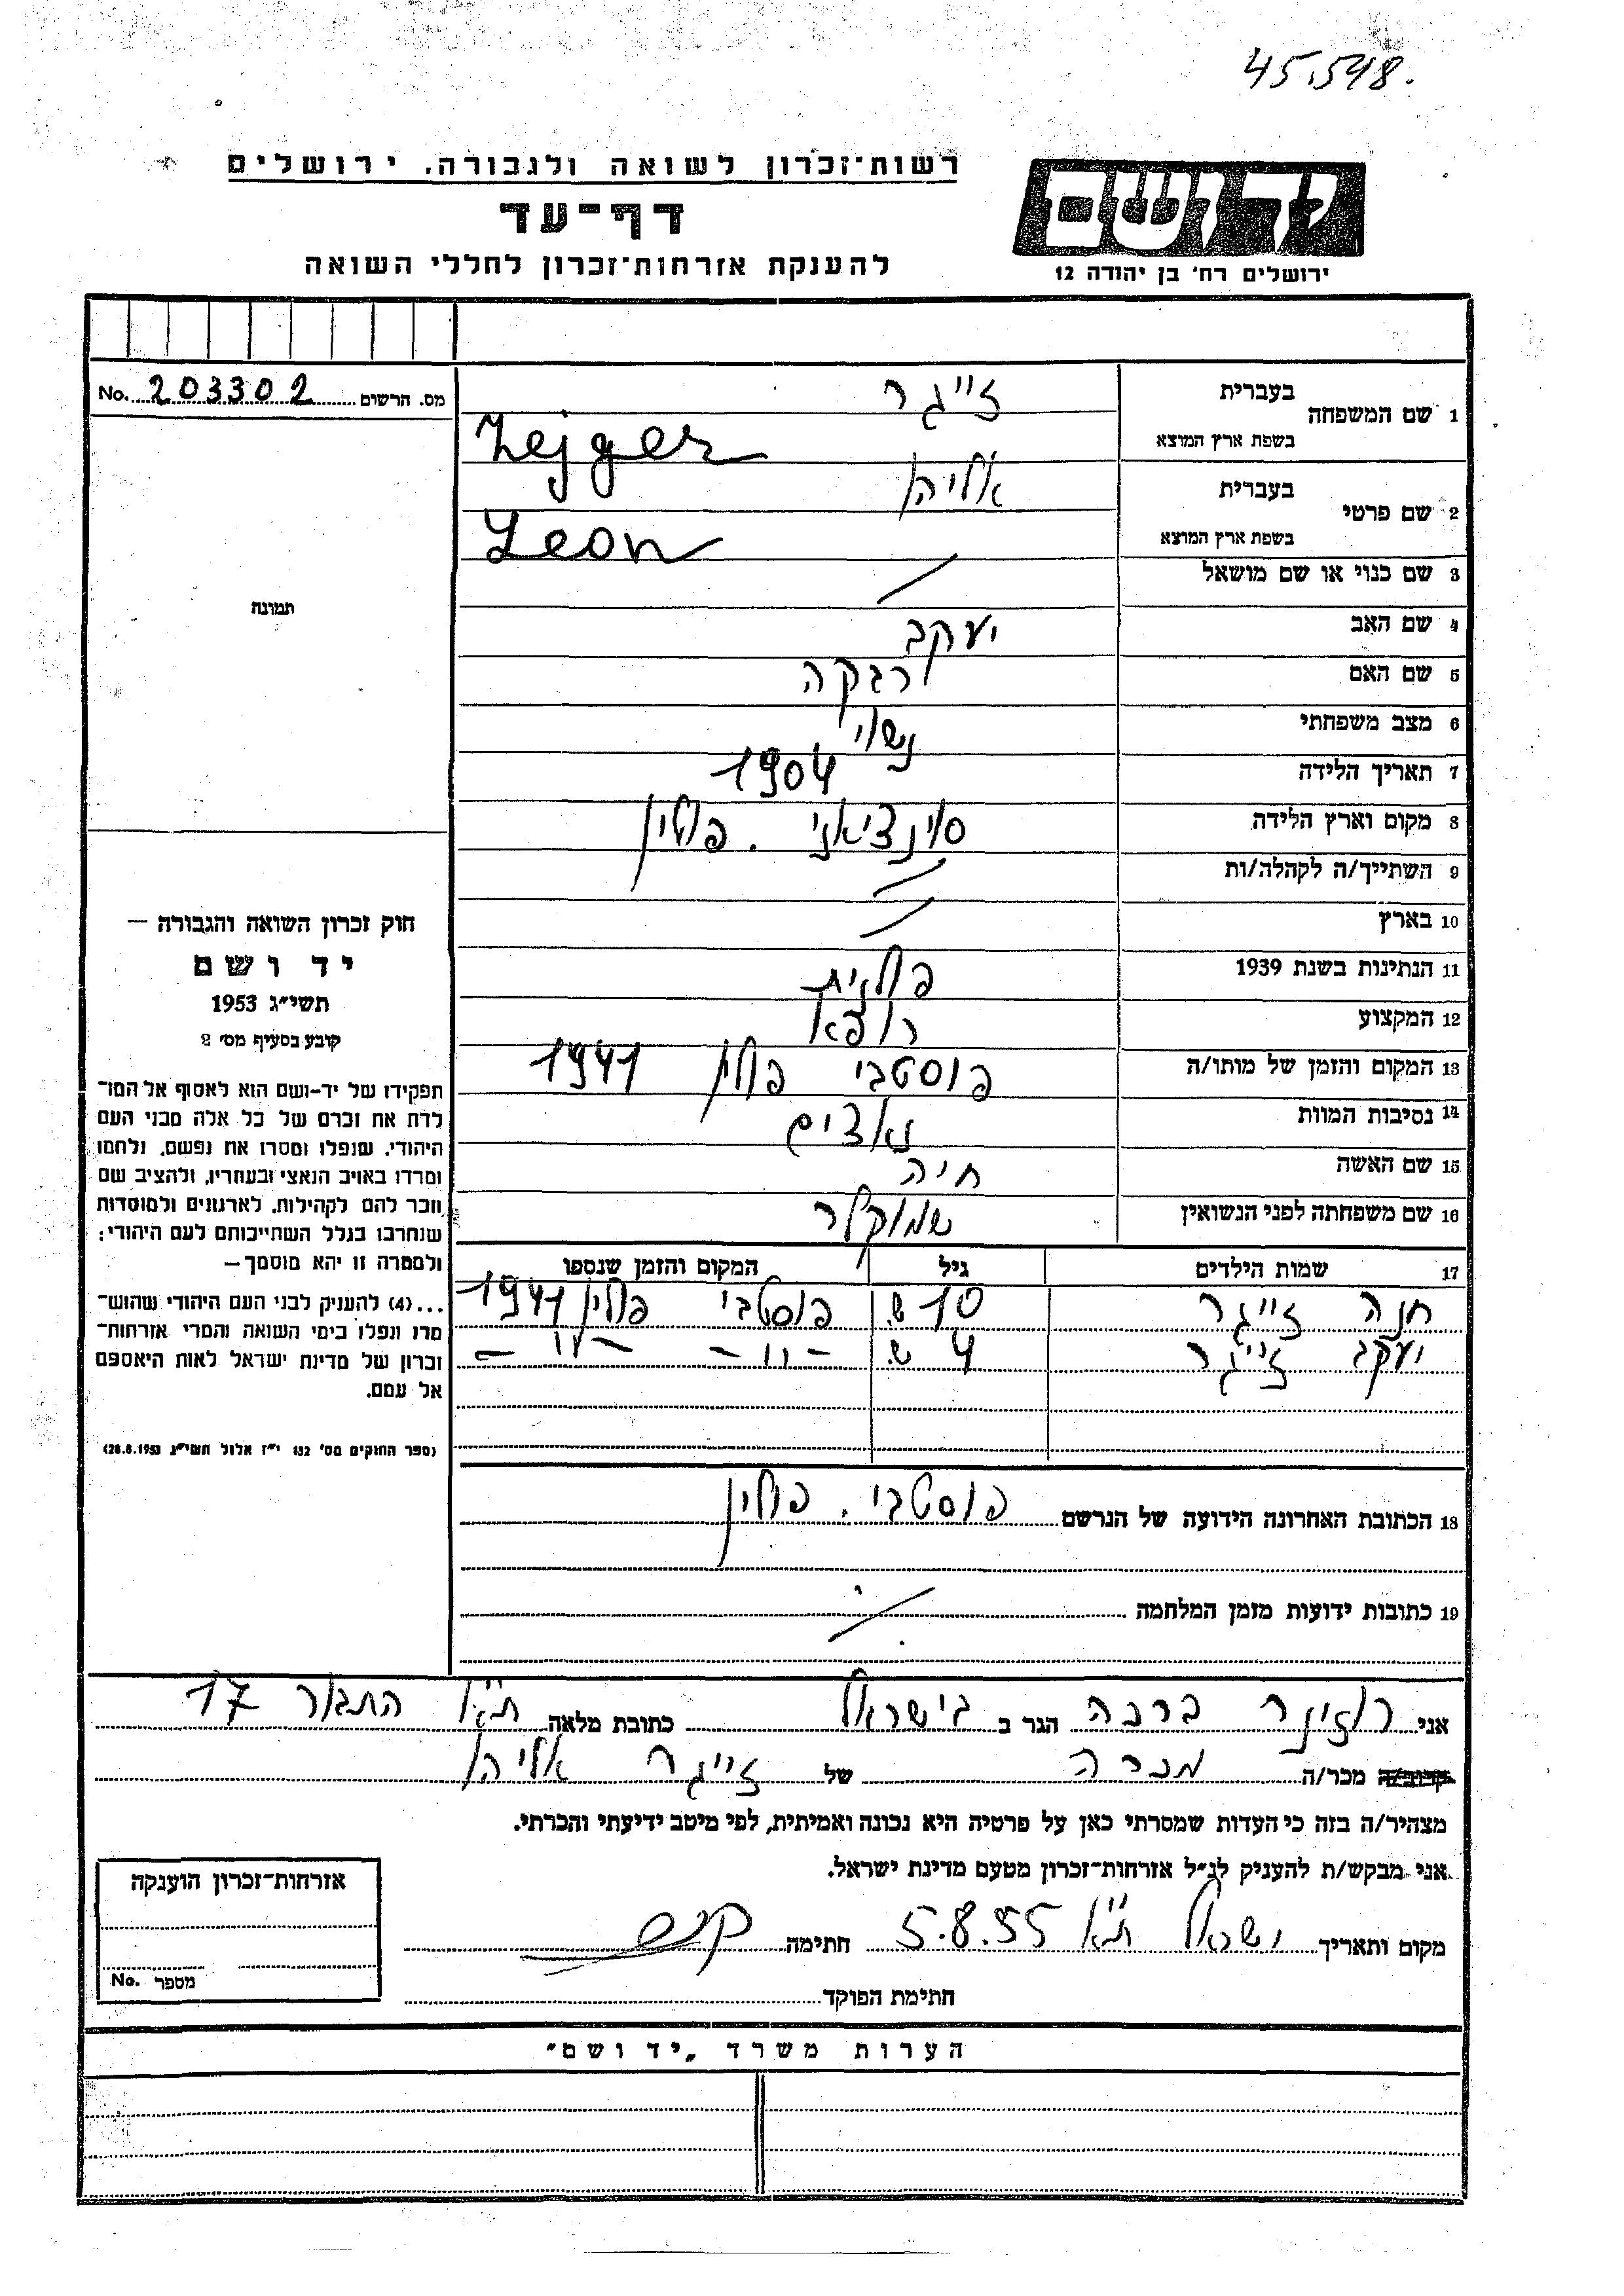 45.548.
רשות-זכרון לשואה ולגבורה, ירושלים
דף-עד
להענקת אזרחות-זכרון לחללי השואה
יד ושם
ירושלים רח' בן יהודה 12
מס. הרשום 203302 No.
תמונה
1 שם המשפחה בעברית זייגר
בשפת ארץ המוצא Zejger
2 שם פרטי בעברית אליהו
בשפת ארץ המוצא Leon
3 שם כנוי או שם מושאל /
4 שם האב יעקב
5 שם האם רבקה
6 מצב משפחתי נשוי
7 תאריך הלידה 1904
8 מקום וארץ הלידה סוינציאני . פולין
9 השתייך/ה לקהלה/ות /
10 בארץ /
11 הנתינות בשנת 1939 פולנית
12 המקצוע רופא
13 המקום והזמן של מותו/ה פוסטבי פולין 1941
14 נסיבות המוות נאצים
15 שם האשה חיה
16 שם משפחתה לפני הנשואין
17 שמות הילדים גיל המקום והזמן שנספו
חנה זייגר 10 ש. פוסטבי פולין 1941
יעקב זייגר 4 ש. -"- -"-
18 הכתובת האחרונה הידועה של הנרשם פוסטבי . פולין
19 כתובות ידועות מזמן המלחמה /
חוק זכרון השואה והגבורה —
יד ושם
תשי"ג 1953
קובע בסעיף מס' 2
תפקידו של יד-ושם הוא לאסוף אל המו-
לדת את זכרם של כל אלה מבני העם
היהודי, שנפלו ומסרו את נפשם, נלחמו
ומרדו באויב הנאצי ובעוזריו, ולהציב שם
וזכר להם לקהילות, לארגונים ולמוסדות
שנחרבו בגלל השתייכותם לעם היהודי;
ולמטרה זו יהא מוסמך —
...(4) להעניק לבני העם היהודי שהוש-
מדו ונפלו בימי השואה והמרי אזרחות-
זכרון של מדינת ישראל לאות היאספם
אל עמם.
(ספר החוקים מס' 132 י"ז אלול תשי"ג 28.8.1953)
אני רוזינר ברכה הגר ב בישראל כתובת מלאה ת"א התבור 17
קרוב/ה מכר/ה מכרה של זייגר אליהו
מצהיר/ה בזה כי העדות שמסרתי כאן על פרטיה היא נכונה ואמיתית, לפי מיטב ידיעתי והכרתי.
אני מבקש/ת להעניק לנ"ל אזרחות-זכרון מטעם מדינת ישראל.
מקום ותאריך ישראל ת"א 5.8.55 חתימה
חתימת הפוקד
אזרחות-זכרון הוענקה
מספר No.
הערות משרד „יד ושם"